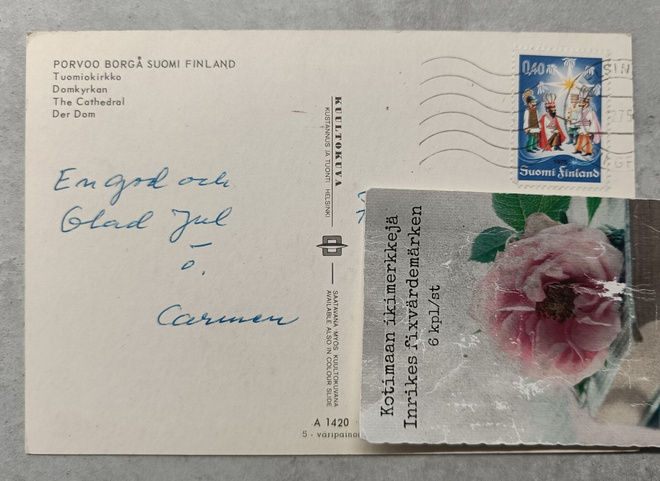 PORVOO BORGÅ SUOMI FINLAND
Tuomiokirkko
Domkyrkan
The Cathedral
Der Dom
En god och
Glad Jul
ö.
Carmen
KUULTOKUVA
KUSTANNUS JA TUONTI HELSINKI
SAATAVANA MYÖS KUULTOKUVANA
AVAILABLE ALSO IN COLOUR SLIDE
A 1420
5 - väripaino
0,40
Suomi Finland
Kotimaan ikimerkkejä
Inrikes fixvärdemärken
6 kpl/st